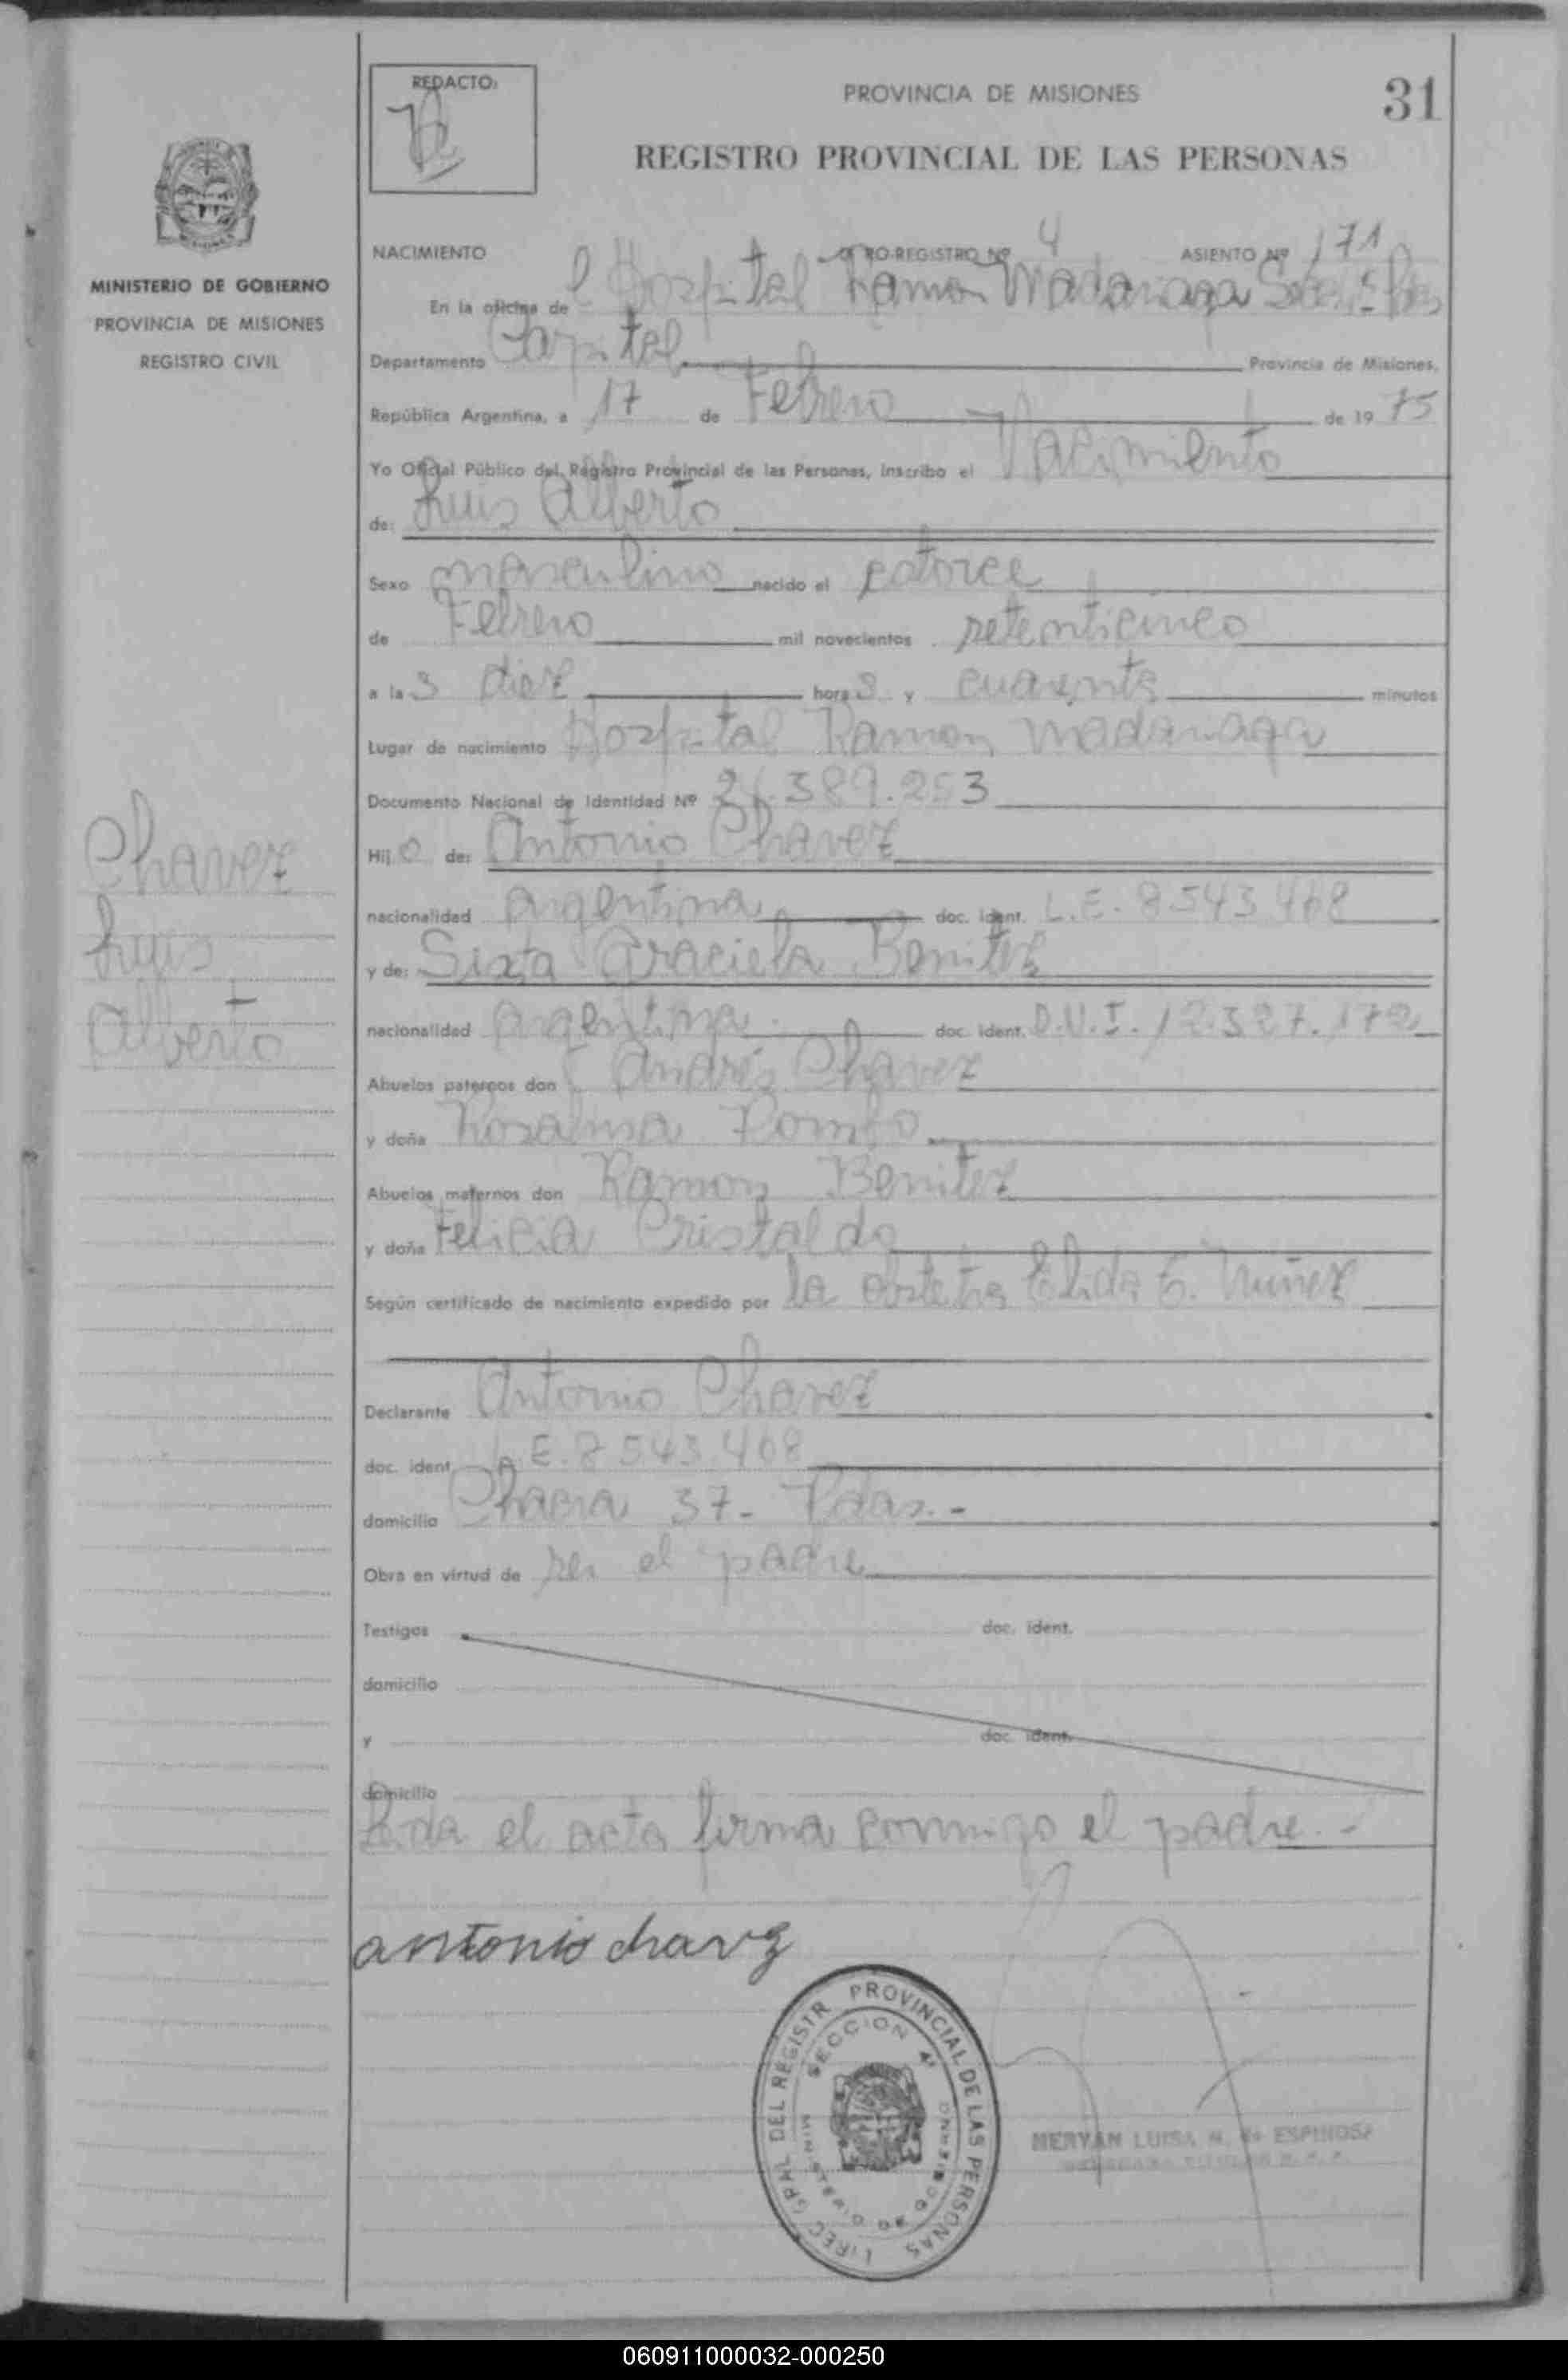 REDACTO:
PROVINCIA DE MISIONES
31
REGISTRO PROVINCIAL DE LAS PERSONAS
MINISTERIO DE GOBIERNO
PROVINCIA DE MISIONES
REGISTRO CIVIL
NACIMIENTO RO-REGISTRO Nº 4 ASIENTO Nº 171
En la oficina de l Hospital Ramon Madariaga
Departamento Capital Provincia de Misiones,
República Argentina, a 17 de Febrero de 1975
Yo Oficial Público del Registro Provincial de las Personas, inscribo el Nacimiento
de: Luis Alberto
Sexo masculino nacido el catorce
de Febrero mil novecientos setenticinco
a las diez horas y cuarenta minutos
Lugar de nacimiento Hospital Ramon Madariaga
Documento Nacional de Identidad Nº 24.389.253
Hijo de: Antonio Chavez
nacionalidad argentina doc. ident. L.E. 8543468
y de: Sixta Graciela Benitez
nacionalidad argentina doc. ident. D.N.I. 12.327.172
Abuelos paternos don Andrés Chavez
y doña Rosalina Rombo
Abuelos maternos don Ramon Benitez
y doña Felicia Cristaldo
Según certificado de nacimiento expedido por la obstetra Elida E. Nuñez
Declarante Antonio Chavez
doc. ident. L.E. 8543.468
domicilio Chacra 37 - Pdas. -
Obra en virtud de ser el padre
Testigos doc. ident.
domicilio
y doc. ident.
domicilio
Leida el acta firma conmigo el padre. -
antonio chavz
Chavez
Luis
Alberto
DIREC GRAL DEL REGISTR PROVINCIAL DE LAS PERSONAS
SECCION 4ª
MINISTERIO DE GOBIERNO
MERYAN LUISA M. de ESPINOSA
060911000032-000250